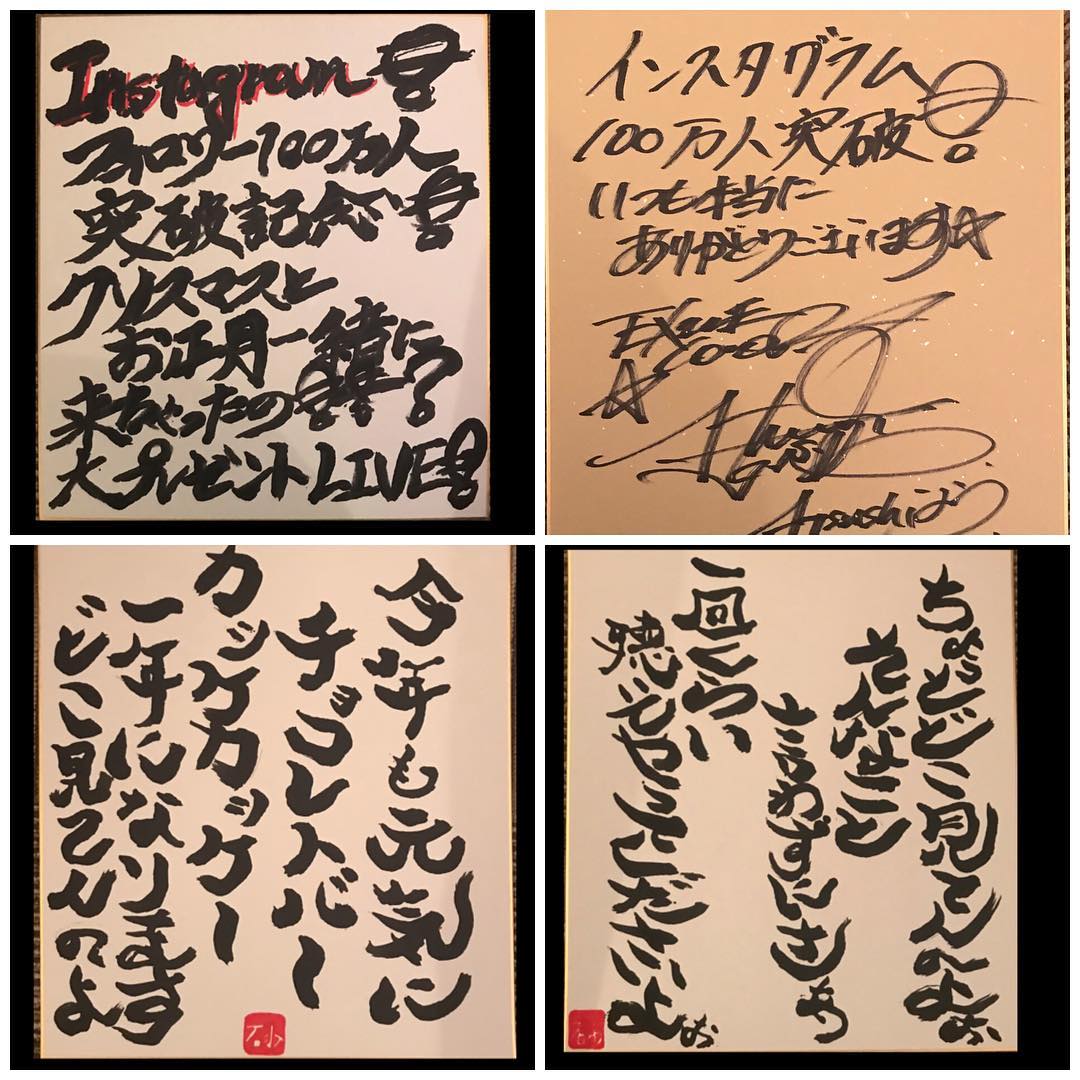 Instagram!
フォロワー100万人
突破記念、!
クリスマスと
お正月一緒に
来ちゃったの!?!?
大プレゼントLIVE!
インスタグラム
100万人突破!
いつも本当に
ありがとうございます☆
EXILE
☆
Atsushiより
今年も元気に
チョコレートバー
カッケカッケー
一年になります
どこ見てんのよ
ちょっとどこ見てんのよぉ
そんなこと
言わずにさぁ
一回くらい
聴いてやってくださいよぉ